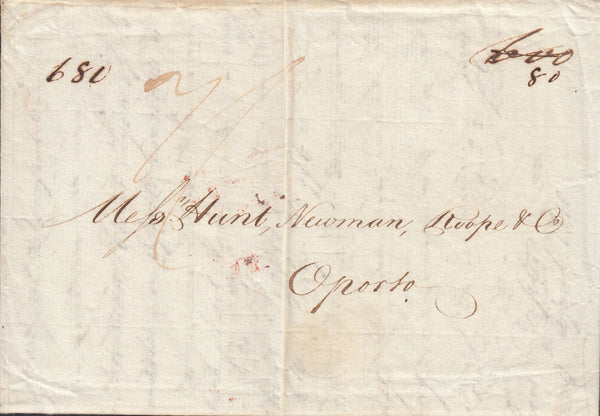 680
600
80
Messrs Hunt, Newman, Roope & Co
Oporto